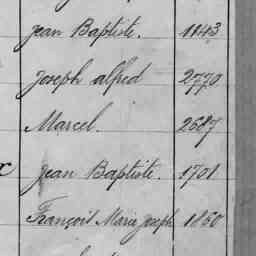 Jean Baptiste. 1143
Joseph alfred 2770
Marcel. 2687
x Jean Baptiste. 1701
François Marie Joseph 1860